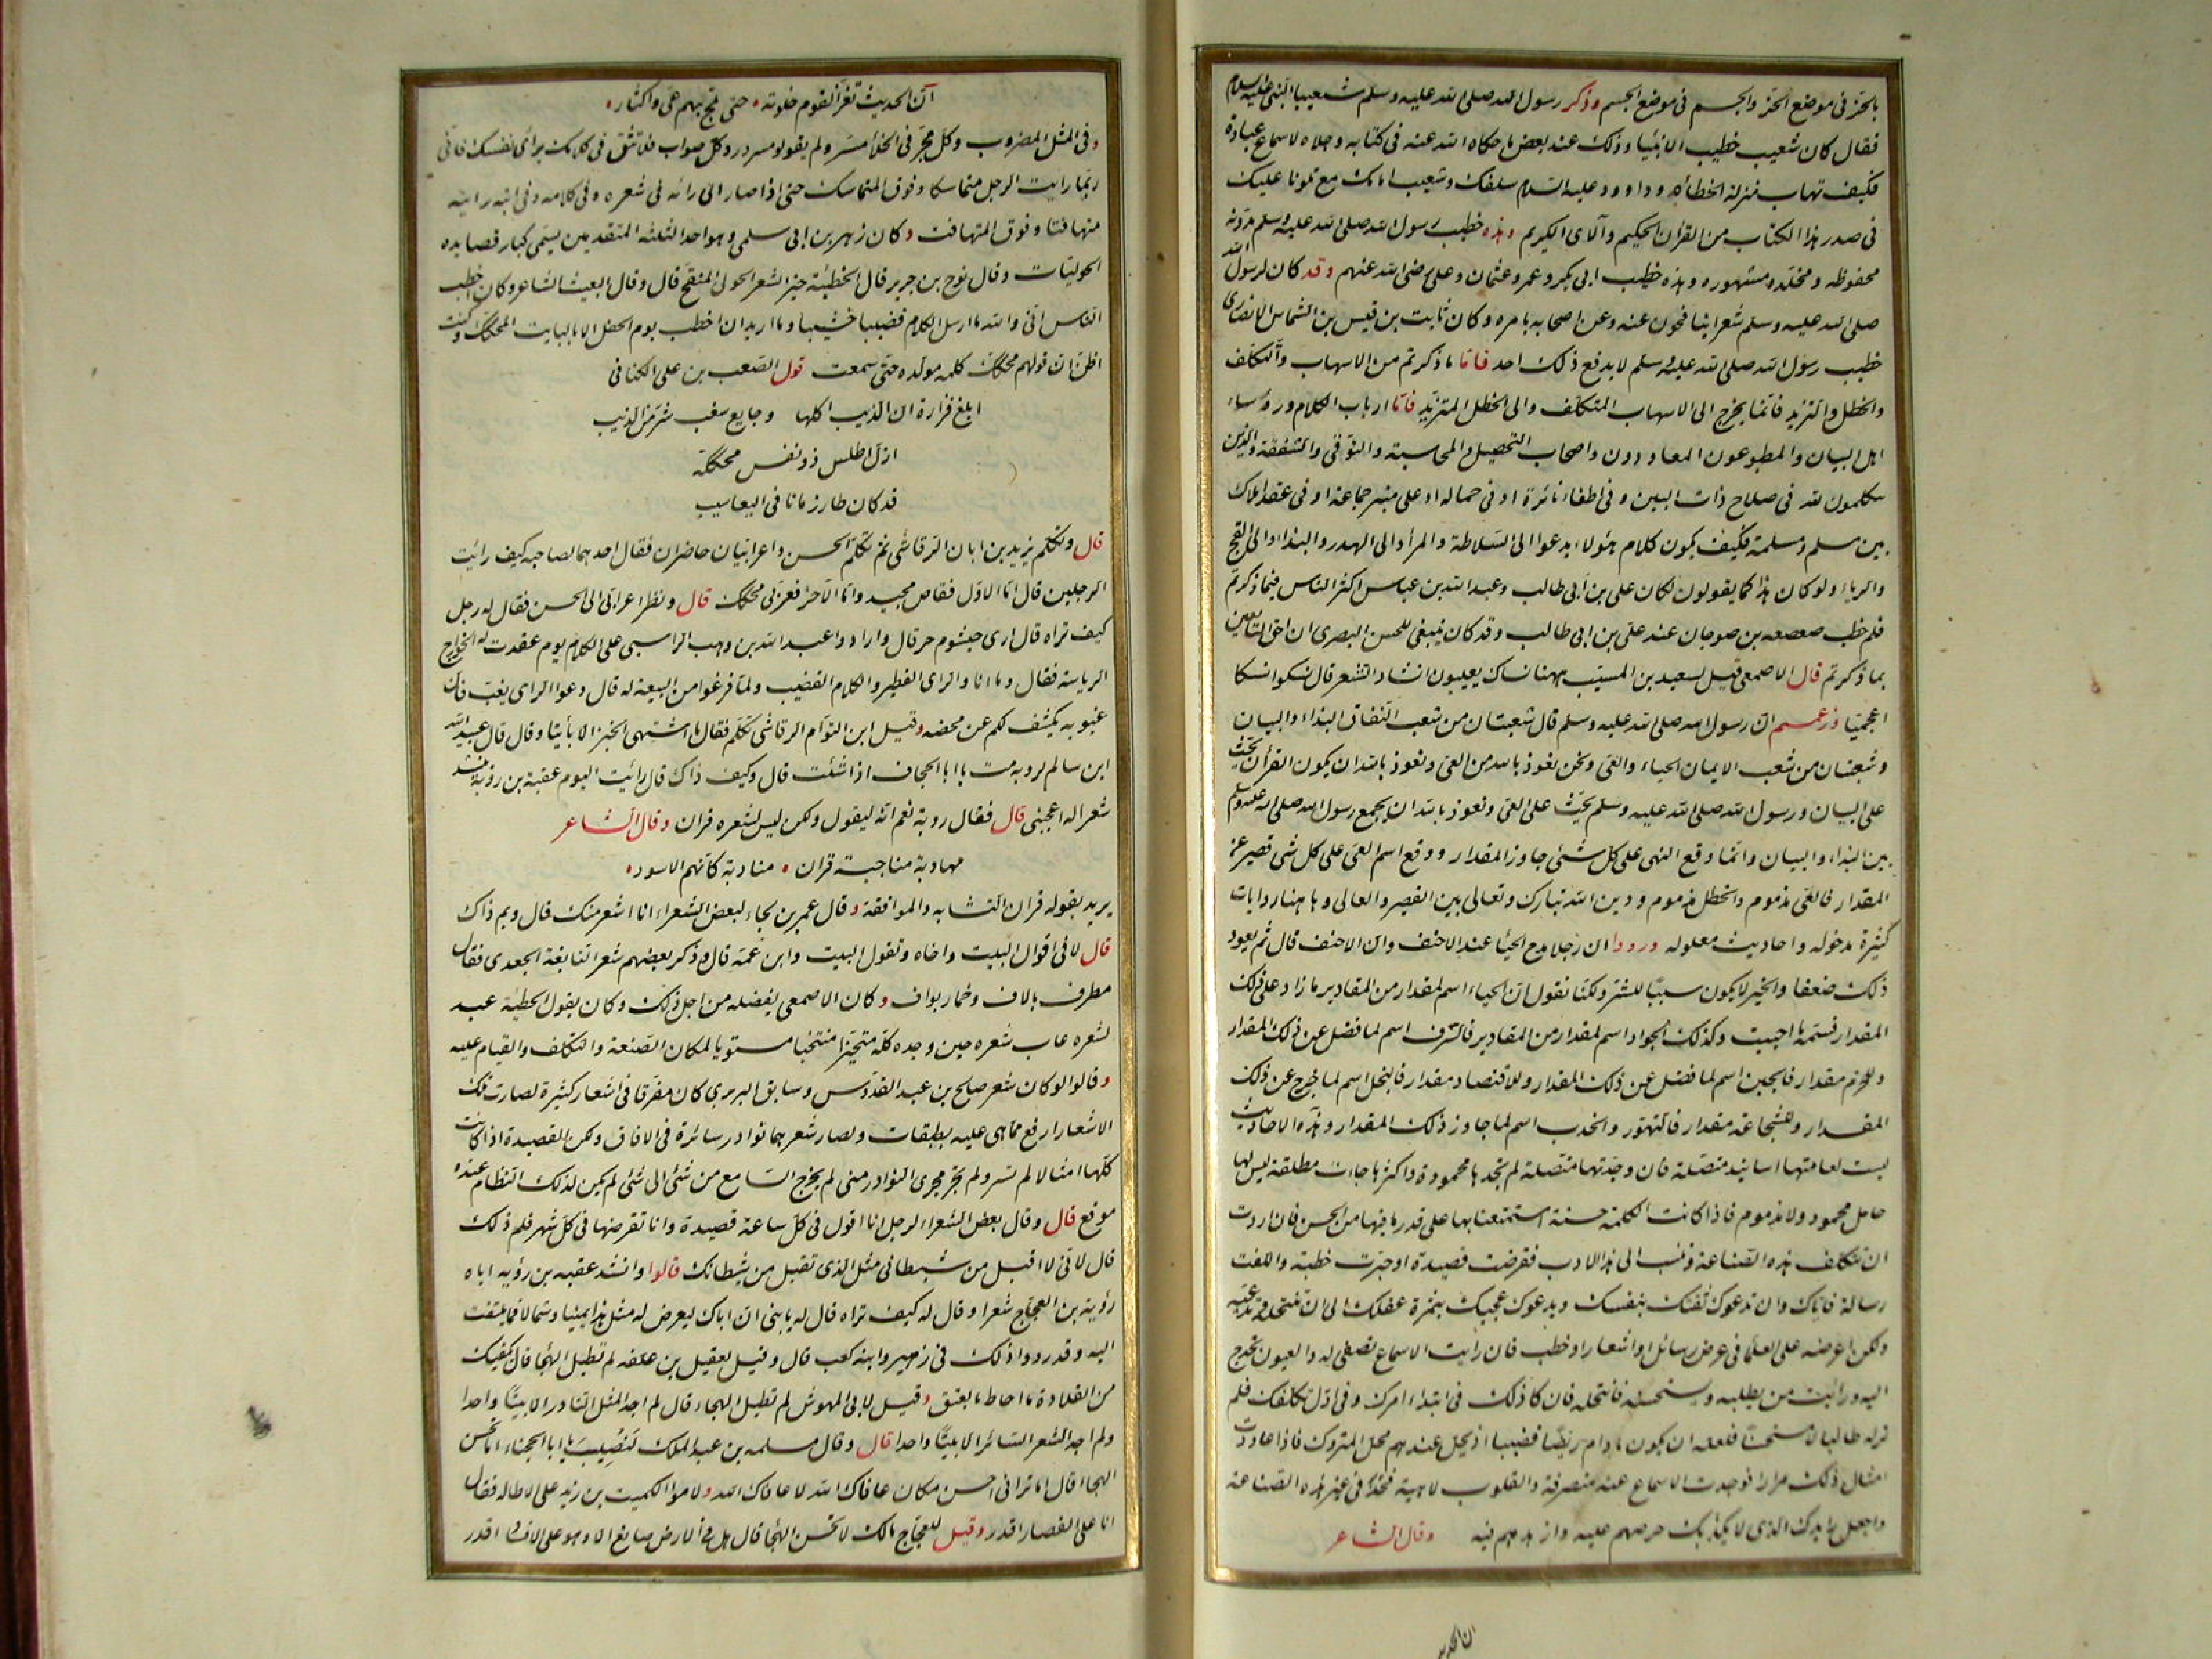 بالحز فی موضع الحز والجسم فی موضع الجسم وذکر رسول الله صلی الله علیه وسلم شعیبا النبی علیه السلام
فقال کان شعیب خطیب الانبیا وذلک عند بعض ما حکاه الله عنه فی کتابه وجلاه لاسماع عباده
فکیف تهاب منزلة الخطابه وداوود علیه السلام سلفک وشعیب امامک مع تلونا علیک
فی صدر هذا الکتاب من القرآن الحکیم والآی الکریم وهذه خطب رسول الله صلی الله علیه وسلم مدونه
محفوظه ومخلده ومشهوره وهذه خطب ابی بکر وعمر وعثمان وعلی رضی الله عنهم وقد کان لرسول الله
صلی الله علیه وسلم شعرا ینافحون عنه وعن اصحابه بامره وکان ثابت بن قیس بن الشماس الانصاری
خطیب رسول الله صلی الله علیه وسلم لا یدفع ذلک احد فاما ما ذکرتم من الاسهاب والتکلف
والخطل والتزید فانما یخرج الی الاسهاب المتکلف والی الخطل المتزید فاما ارباب الکلام ورؤساء
اهل البیان والمطبوعون المعاودون واصحاب التحصیل والمحاسبة والتوقی والشفقة والذین
یتکلمون لله فی صلاح ذات البین وفی اطفاء نائرة او فی حماله او علی منبر جماعة او فی عقد املاک
بین مسلم ومسلمة فکیف یکون کلام هولاء یدعوا الی السلاطة والمرا والی الهدر والبذاء والی النفج
والریاء ولو کان هذا کما یقولون لکان علی بن أبی طالب وعبد الله بن عباس اکثر الناس فیما ذکرتم
فلم خطب صعصعه بن صوجان عند علی بن ابی طالب وقد کان ینبغی للحسن البصری ان احق التابعین
بما ذکرتم قال الاصمعی قیل لسعید بن المسیب ههنا نساک یعیبون انشاد الشعر قال نسکوا نسکا
اعجمیا وزعمتم ان رسول الله صلی الله علیه وسلم قال شعبتان من شعب النفاق البذاء والبیان
وشعبتان من شعب الایمان الحیاء والعی ونحن نعوذ بالله من العی ونعوذ بالله ان یکون القرآن یحث
علی البیان ورسول الله صلی الله علیه وسلم یحث علی العی ونعوذ بالله ان یجمع رسول الله صلی الله علیه وسلم
بین البذاء والبیان وانما وقع النهی علی کل شئی جاوز المقدار ووقع اسم العی علی کل شی قصر عن
المقدار فالعی مذموم والخطل مذموم ودین الله تبارک وتعالی بین القصر والعالی وهاهنا روایات
کثیرة مدخوله واحادیث معلوله ورووا ان رجلا مدح الحیا عند الاحنف وان الاحنف قال ثم یعود
ذلک ضعفا والخیر لا یکون سببا للشر ولکنا نقول ان الحیاء اسم لمقدار من المقادیر ما زاد علی ذلک
المقدار فسمه ما احببت وکذلک الجواد اسم لمقدار من المقادیر فالسرف اسم لما فضل عن ذلک المقدار
وللحزم مقدار فالجبن اسم لما فضل عن ذلک المقدار وللاقتصاد مقدار فالبخل اسم لما خرج عن ذلک
المقدار وللشجاعة مقدار فالتهور والخدب اسم لما جاوز ذلک المقدار وهذه الاحادیث
لیست لعامتها اسانید متصلة فان وجدتها متصلة لم تجدها محمودة واکثرها جاءت مطلقة لیس لها
حامل محمود ولا مذموم فاذا کانت الکلمة حسنة استمتعنا بها علی قدر ما فیها من الحسن فان اردت
ان تتکلف هذه الصناعة وتنسب الی هذا الادب فقرضت قصیدة او حبرت خطبة والفت
رسالة فایاک وان تدعوک ثقتک بنفسک ویدعوک عجبک بثمرة عقلک الی ان تنتحله وتدعیه
ولکن اعرضه علی العلما فی عرض رسائل او اشعار او خطب فان رایت الاسماع تصغی له والعیون تحدج
الیه ورایت من یطلبه ویستحسنه فانتحله فان کان ذلک فی ابتداء امرک وفی اول تکلفک فلم
تر له طالبا ولا مستحسنا فلعله ان یکون مادام ریضا قضیبا ان یحل عندهم محل المتروک فاذا عاودت
امثال ذلک مرارا فوجدت الاسماع عنه منصرفة والقلوب لاهیة فخذ فی غیر هذه الصناعة
واجعل رایدک الذی لا یکذبک حرصهم علیه وازهدهم فیه وقال الشاعر
ان الحدیث
ان الحدیث تغر القوم خلوته حتی یلج بهم عی واکثار
وفی المثل المضروب وکل مجر فی الخلأ مسر ولم یقولوا مسرور وکل صواب فلا تثق فی کلامک برأی نفسک فانی
ربما رایت الرجل متماسکا وفوق المتماسک حتی اذا صار الی رائه فی شعره وفی کلامه وفی ابنه رایته
متهافتا وفوق المتهافت وکان زهیر بن ابی سلمی وهو احد الثلثه المتقدمین یسمی کبار قصایده
الحولیات وقال نوح بن جریر قال الحطیئة خیر الشعر الحولی المنقح قال وقال البعیث الشاعر وکان اخطب
الناس انی والله ما ارسل الکلام قضیبا خشیبا وما ارید ان اخطب یوم الحفل الا بالبایت المحکک وکنت
اظن ان قولهم محکک کلمه مولده حتی سمعت قول الصعب بن علی الکنانی
ابلغ فزارة ان الذیب اکلها وجایع سغب شر من الذیب
ازل اطلس ذو نفس محککة
قد کان طار زمانا فی الیعاسیب
قال وتکلم یزید بن ابان الرقاشی ثم تکلم الحسن واعرابیان حاضران فقال احدهما لصاحبه کیف رائیت
الرجلین قال اما الاول فقاص مجید واما الآخر فعربی محکک قال ونظر اعرابی الی الحسن فقال له رجل
کیف تراه قال اری خیشوم حر قال وارادوا عبد الله بن وهب الراسبی علی الکلام یوم عقدت له الخوارج
الریاسة فقال وما انا والرای الفطیر والکلام القضیب ولما فرغوا من البیعة له قال دعوا الرای یغب فان
غبوبه یکشف لکم عن محضه وقیل ابن التوأم الرقاشی تکلم فقال ما اشتهی الخبز الا بأیتا وقال قال عبید الله
ابن سالم لروبه مت یا ابا الجحاف اذا شئت قال وکیف ذاک قال رائیت الیوم عقبة بن روبة ینشد
شعرا له اعجبنی قال فقال روبة نعم انه لیقول ولکن لیس لشعره قران وقال الشاعر
مهادبة مناجبة قران منادبة کانهم الاسود
یرید بقوله قران التشابه والموافقة وقال عمر بن لجاء لبعض الشعراء انا اشعر منک قال وبم ذاک
قال لانی اقول البیت واخاه وتقول البیت وابن عمه قال وذکر بعضهم شعر النابغة الجعدی فقال
مطرف بالاف وخمار بواف وکان الاصمعی یفضله من اجل ذلک وکان یقول الحطیئة عبد
لشعره عاب شعره حین وجده کله متخیرا منتخبا مستویا لمکان الصنعة والتکلف والقیام علیه
وقالوا لو کان شعر صالح بن عبد القدوس وسابق البربری کان مفرقا فی اشعار کثیرة لصارت تلک
الاشعار ارفع مما هی علیه بطبقات ولصار شعرهما نوادر سائرة فی الافاق ولکن القصیدة اذا کانت
کلها امثالا لم تسر ولم تجر مجری النوادر ومتی لم یخرج السامع من شئی الی شئی لم یکن لذلک النظام عنده
موقع قال وقال بعض الشعراء لرجل انا اقول فی کل ساعة قصیدة وانت تقرضها فی کل شهر فلم ذلک
قال لانی لا اقبل من شیطانی مثل الذی تقبل من شیطانک قالوا وانشد عقبه بن رؤبه اباه
رؤبة بن العجاج شعرا وقال له کیف تراه قال له یا بنی ان اباک لیعرض له مثل هذا یمینا وشمالا فما یلتفت
الیه وقد رووا ذلک فی زهیر وابنه کعب قال وقیل لعقیل بن علفه لم لا تطیل الهجا قال یکفیک
من القلادة ما احاط بالعنق وقیل لابی المهوش لم لا تطیل الهجاء قال لم اجد المثل النادر الا بیتا واحدا
ولم اجد الشعر السائر الا بیتا واحدا قال وقال مسلمه بن عبد الملک لنصیب یا ابا الحجناء اما تحسن
الهجاء قال اما ترانی احسن مکان عافاک الله لا عافاک الله ولاموا الکمیت بن زید علی الاطاله فقال
انا علی القصار اقدر وقیل للعجاج مالک لا تحسن الهجا قال هل فی الارض صانع الا وهو علی الافساد اقدر